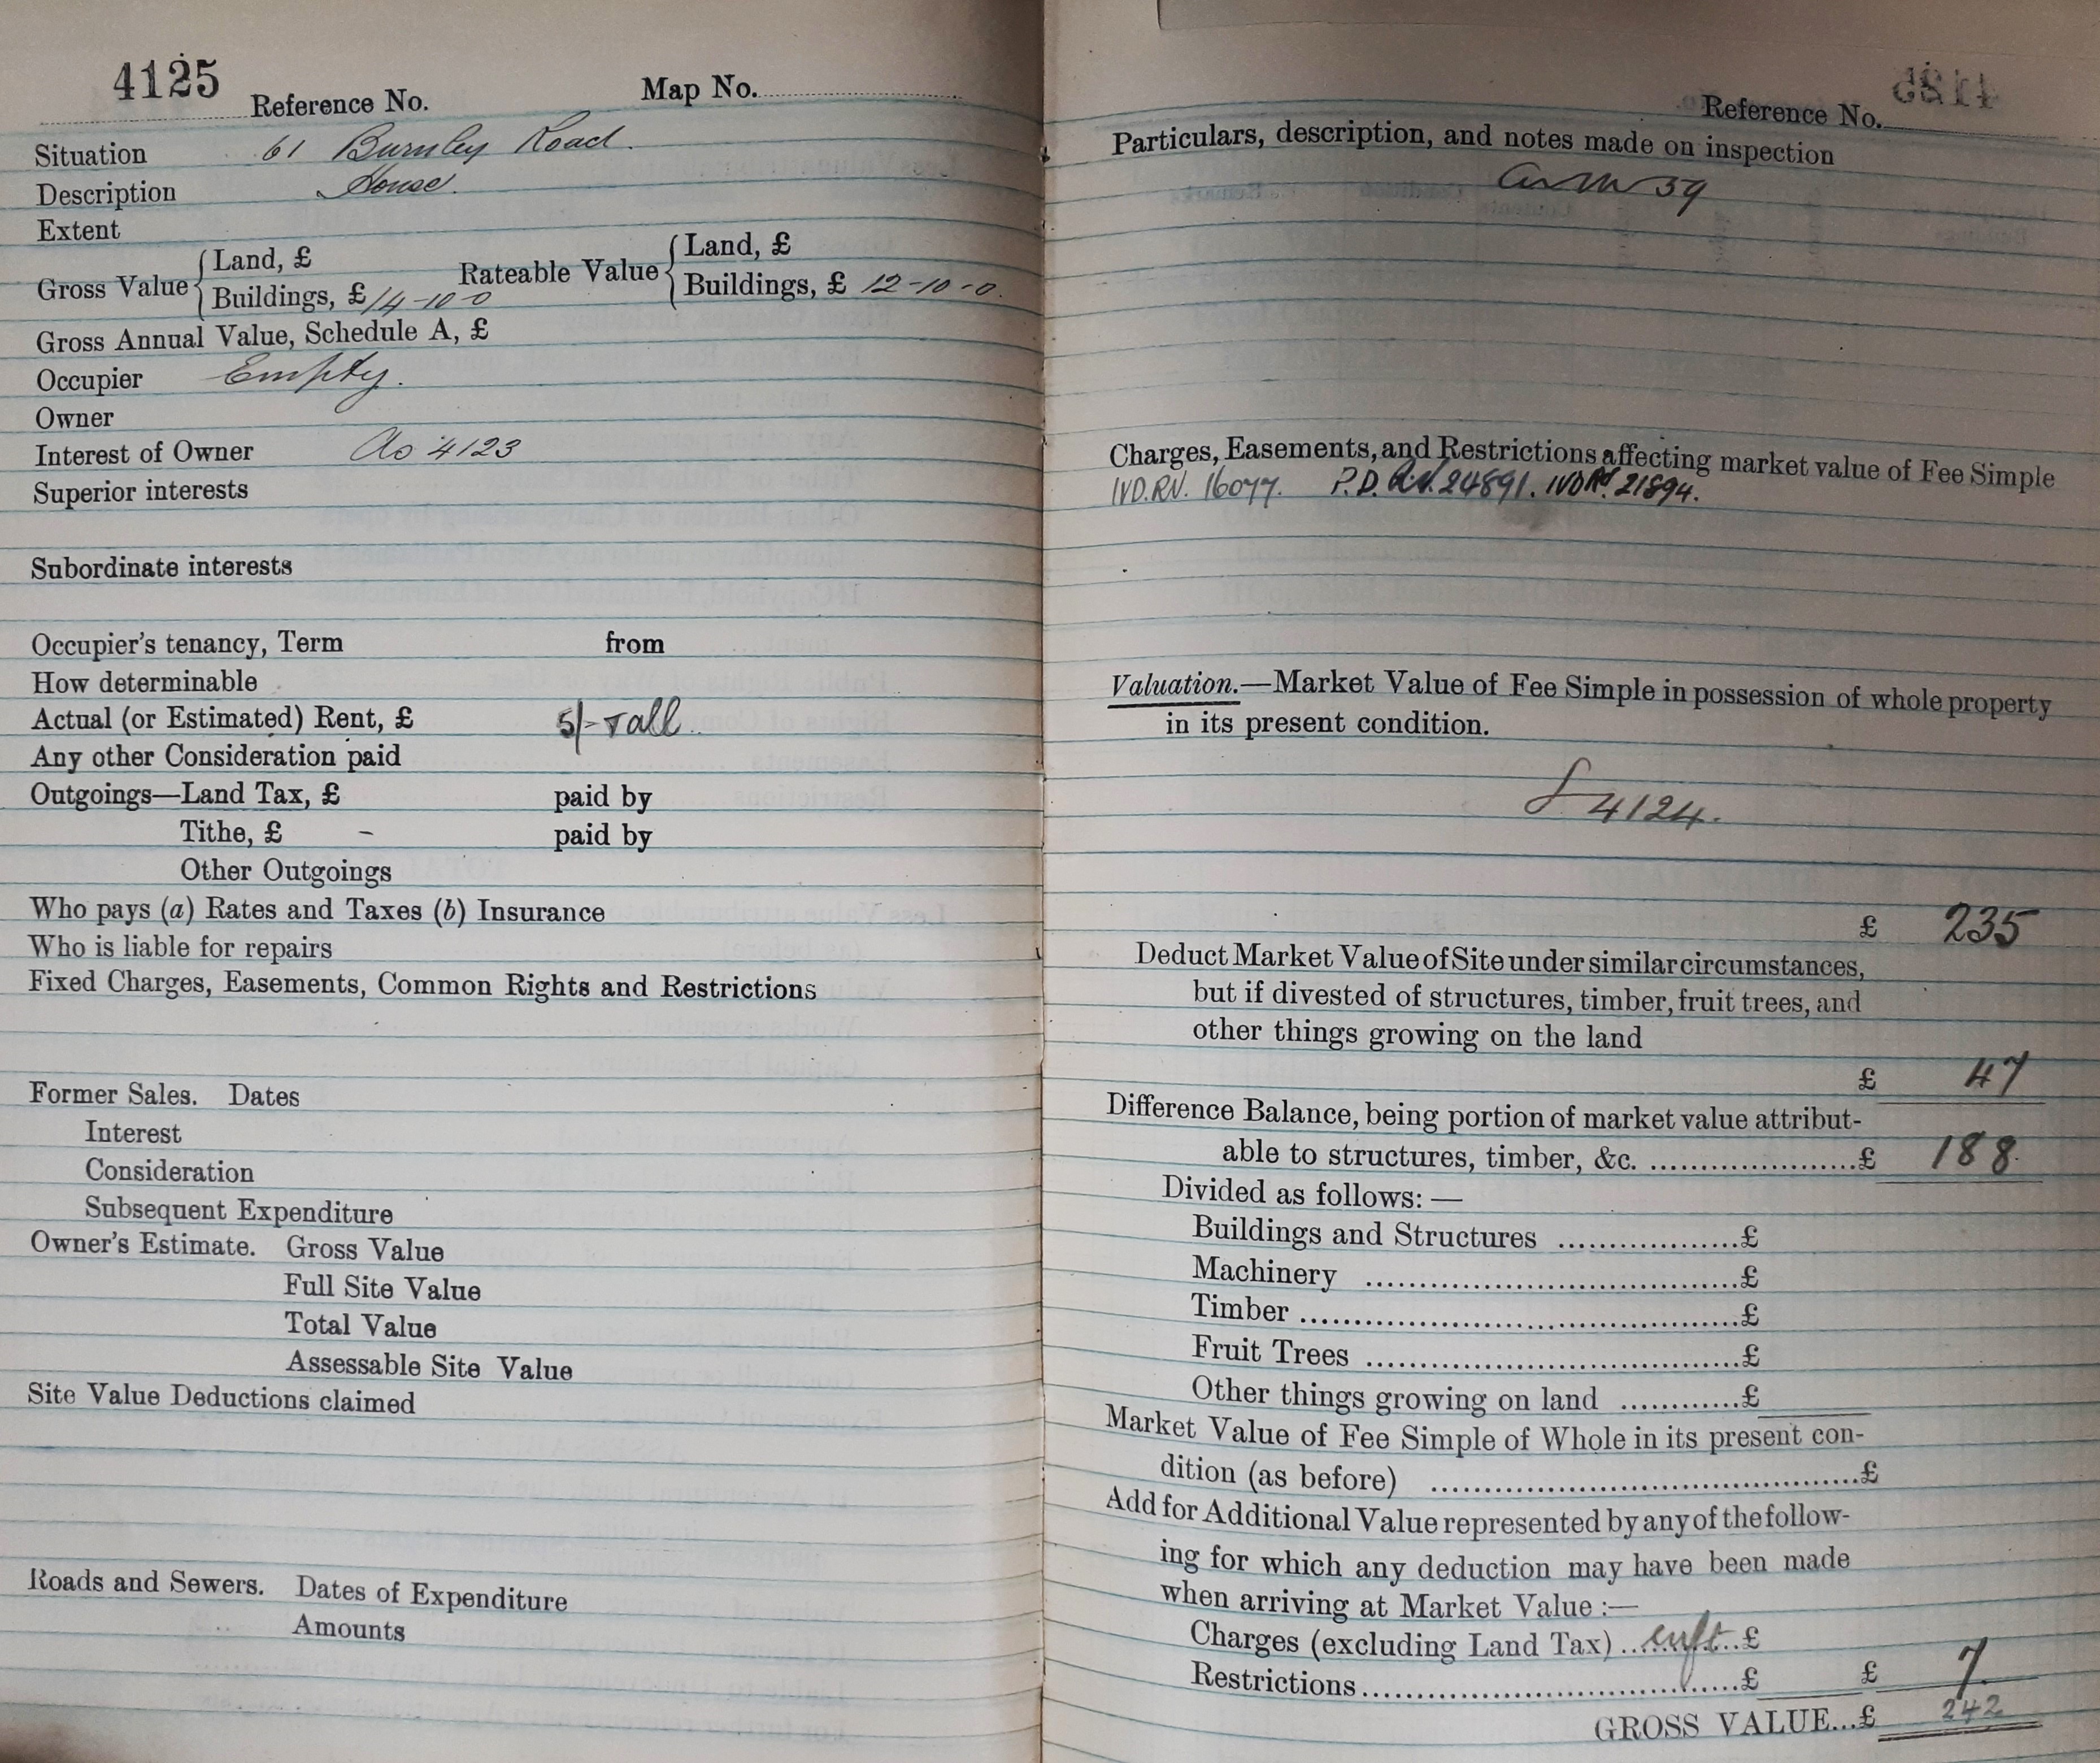 4125 Reference No. Map No.
Situation 61 Burnley Road.
Description House.
Extent
Gross Value { Land, £
Buildings, £ 14-10-0
Rateable Value { Land, £
Buildings, £ 12-10-0.
Gross Annual Value, Schedule A, £
Occupier Empty.
Owner
Interest of Owner do 4123
Superior interests
Subordinate interests
Occupier's tenancy, Term from
How determinable
Actual (or Estimated) Rent, £ 5/- r all
Any other Consideration paid
Outgoings—Land Tax, £ paid by
Tithe, £ - paid by
Other Outgoings
Who pays (a) Rates and Taxes (b) Insurance
Who is liable for repairs
Fixed Charges, Easements, Common Rights and Restrictions
Former Sales. Dates
Interest
Consideration
Subsequent Expenditure
Owner's Estimate. Gross Value
Full Site Value
Total Value
Assessable Site Value
Site Value Deductions claimed
Roads and Sewers. Dates of Expenditure
Amounts
Reference No.
Particulars, description, and notes made on inspection
59
Charges, Easements, and Restrictions affecting market value of Fee Simple
IVD.RV. 16077. P.D. R.V. 24891. IVD 21894.
Valuation.—Market Value of Fee Simple in possession of whole property
in its present condition.
4124.
£ 235
Deduct Market Value of Site under similar circumstances,
but if divested of structures, timber, fruit trees, and
other things growing on the land
£ 47
Difference Balance, being portion of market value attribut-
able to structures, timber, &c. ....................£ 188.
Divided as follows:—
Buildings and Structures .................£
Machinery ..................................£
Timber ........................................£
Fruit Trees ..................................£
Other things growing on land ............£
Market Value of Fee Simple of Whole in its present con-
dition (as before) .......................................£
Add for Additional Value represented by any of the follow-
ing for which any deduction may have been made
when arriving at Market Value :—
Charges (excluding Land Tax) ..........£
Restrictions..................................£ £ 7
GROSS VALUE...£ 242